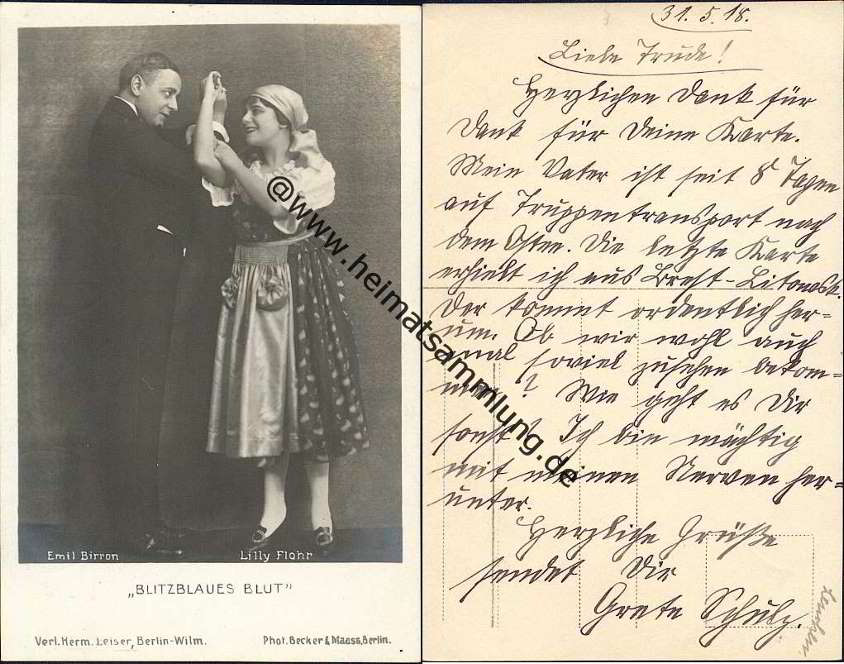 Emil Birron
Lilly Flohr
„BLITZBLAUES BLUT"
Verl. Herm. Leiser, Berlin-Wilm.
Phot. Becker & Maass, Berlin.
@www.heimatsammlung.de
31.5.18.
Liebe Trude!
Herzlichen Dank für
Dank für Deine Karte.
Mein Vater ist seit 8 Tagen
auf Truppentransport nach
dem Osten. Die letzte Karte
erhielt ich aus Brest-Litowsk.
Der kommt ordentlich her-
um. Ob wir wohl auch
mal soviel zusehen bekom-
men? Wie geht es Dir
sonst? Ich bin mächtig
mit meinen Nerven her-
unter.
Herzliche Grüße
sendet Dir
Grete Schulz.